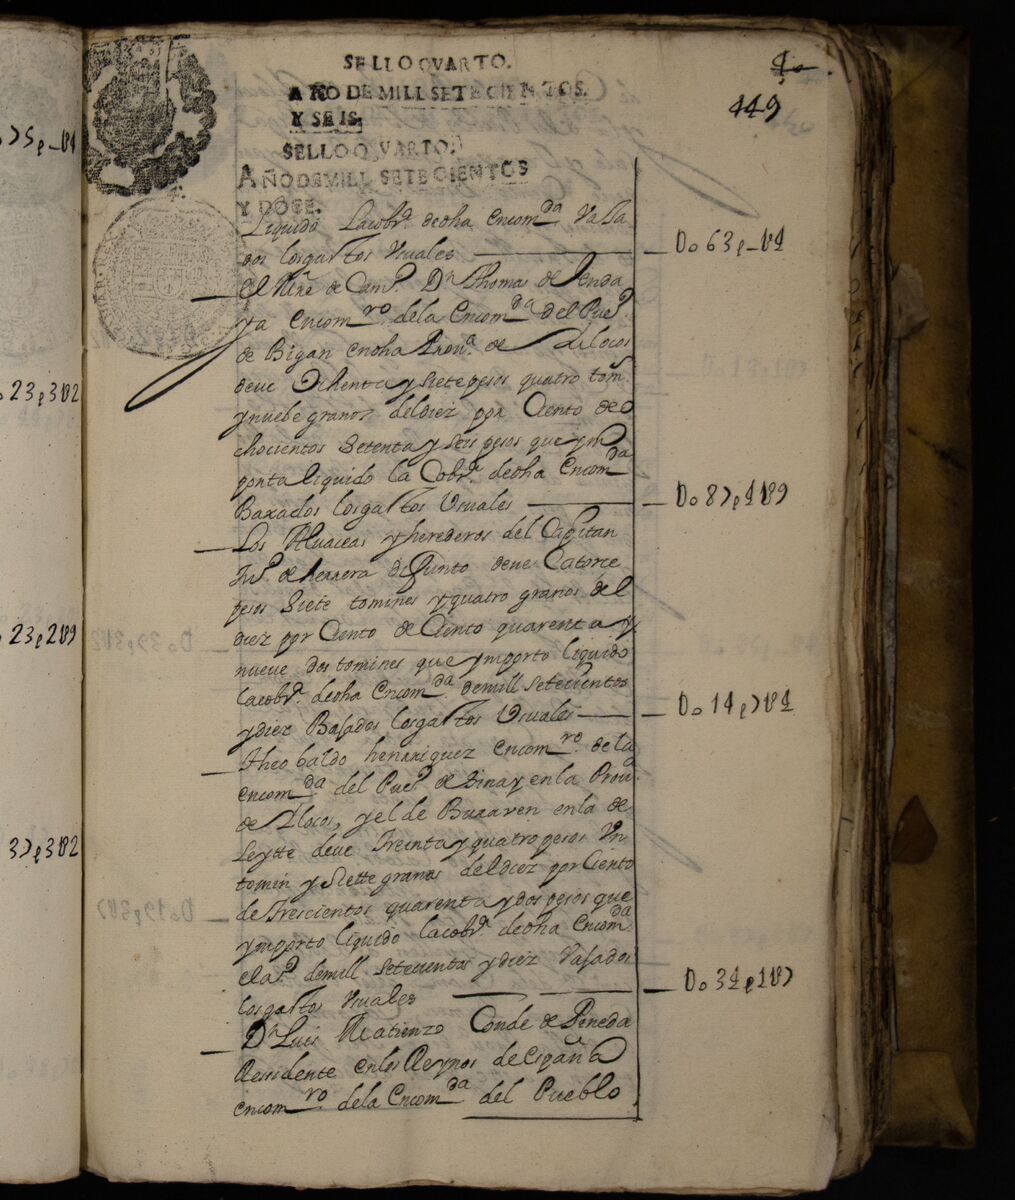 75p__ U4
23p3U2
23p2U9
37p3U2
449
SELLO QVARTO.
AÑO DE MILL SETECIENTOS.
Y SEIS.
SELLO QVARTO.
AÑO DE MILL SETECIENTOS
Y DOÇE.
Liquido Lacobr.ª deoha Encom.da Vaxa
dos losgastos Vsuales — Do 63p__U4
El Mre de Cam.po Dn Thomas de Enda
ya Encom.ro dela Encom.da del Pueº
de Bigan enoha Prov.ª de Ylocos
deve Ochenta y siete pesos quatro tom.s
y nuebe granos deldiez por Ciento de o
chocientos Setenta y seis pesos que ym
ponta liquido la Cobr.ª deoha Encom.da
Baxados losgastos Vsuales — Do 87p4U9
Los Aluaceas y herederos del Capitan
Juº de herrera difunto deve Catorce
pesos Siete tomines y quatro granos del
diez por Ciento de Ciento quarenta y
nueve dos tomines que ymporto liquido
lacobr.ª deoha Encom.da demill setecientos
y diez Basados losgastos Vsuales — Do 14p7U4
Theobaldo henrriquez Encom.ro de la
encom.da del Pueº de Sinay en la Prou.ª
de Ylocos, y el de Buraven en la de
Leytte deve Treinta y quatro pesos Vn
tomin y siette granos deldiez por Ciento
de Trescientos quarenta y dos pesos que
ymporto liquido lacobr.ª deoha Encom.da
el aº demill setecientos y diez Vasados
losgastos Vsuales — Do 34p1U7
Dn Luis Matienzo Conde de Peneda
Ressidente enlos Reynos de España
encom.ro dela Encom.da del Pueblo